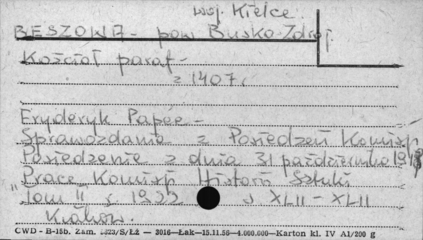 woj. Kielce
BESZOWA - pow Busko-Zdrój
Kościół paraf -
z 1407 r.
Fryderyk Papée -
Sprawozdanie z Posiedzeń Komisji
Posiedzenie z dnia 31 października
"Prace Komisji Historii Sztuki
Tom II s 1922 s XLII - XLII
Kraków.
CWD - B-15b. Zam. S/Łż — 3016 — Łak — 15.11.56 — 4.000.000 — Karton kl. IV A1/200 g